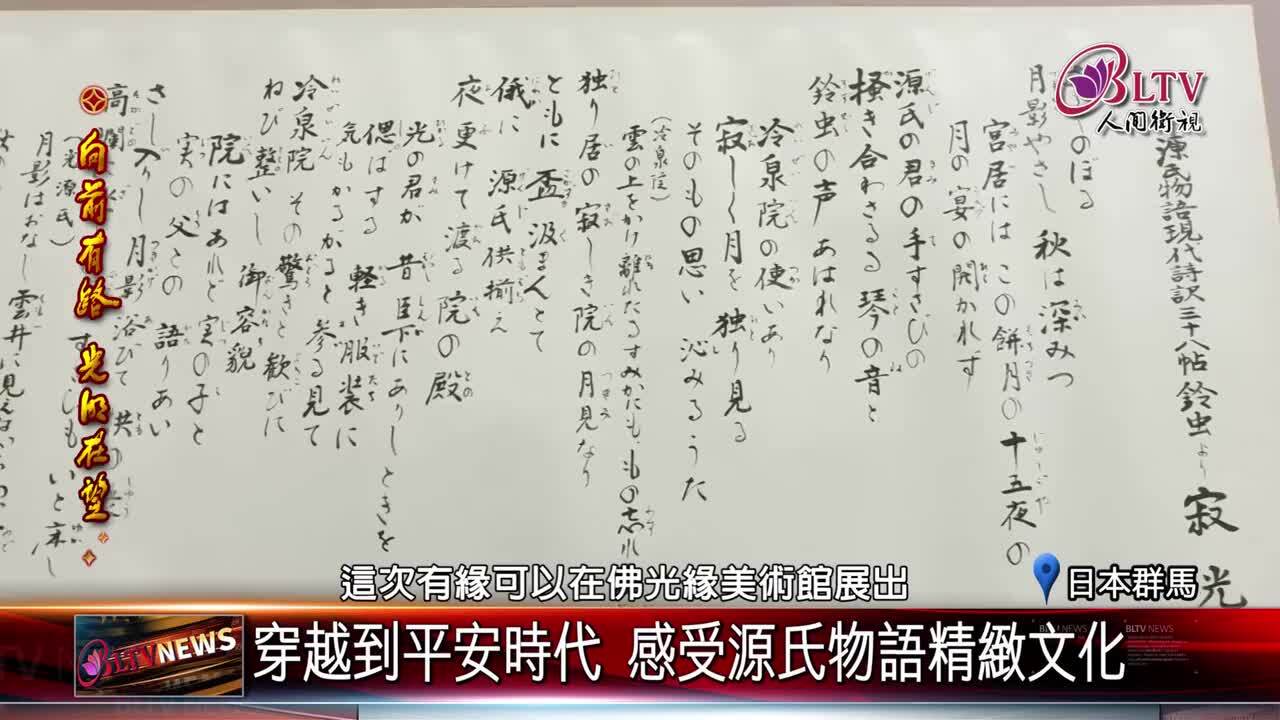 源氏物語現代詩訳三十八帖 鈴虫より 寂光
のぼる
月影やさし 秋は深みつ
宮居には この餅月の 十五夜の
月の宴の 開かれず
源氏の君の 手すさびの
掻き合わさるる 琴の音と
鈴虫の声 あはれなり
冷泉院の使いあり
寂しく月を 独り見る
そのもの思い 沁みるうた
(冷泉院)
雲の上をかけ離れたるすみかにも、もの忘れ
独り居の 寂しき院の 月見なり
ともに盃 汲まんとて
俄に 源氏供揃え
夜更けて渡る 院の殿
光の君が 昔臣下にありしときを
偲はする 軽き服装に
気もかるがると 参る見て
冷泉院 その驚きと 歓びに
ねび整いし 御容貌
院にはあれど 実の子と
実の父との 語りあい
さし入りし 月影浴びて 供の
高
(光源氏)
月影はおなじ雲井に見えながら
BLTV
人間衛視
向前有路 光明在望
這次有緣可以在佛光緣美術館展出
日本群馬
BLTV NEWS
穿越到平安時代 感受源氏物語精緻文化
BLTV NEWS